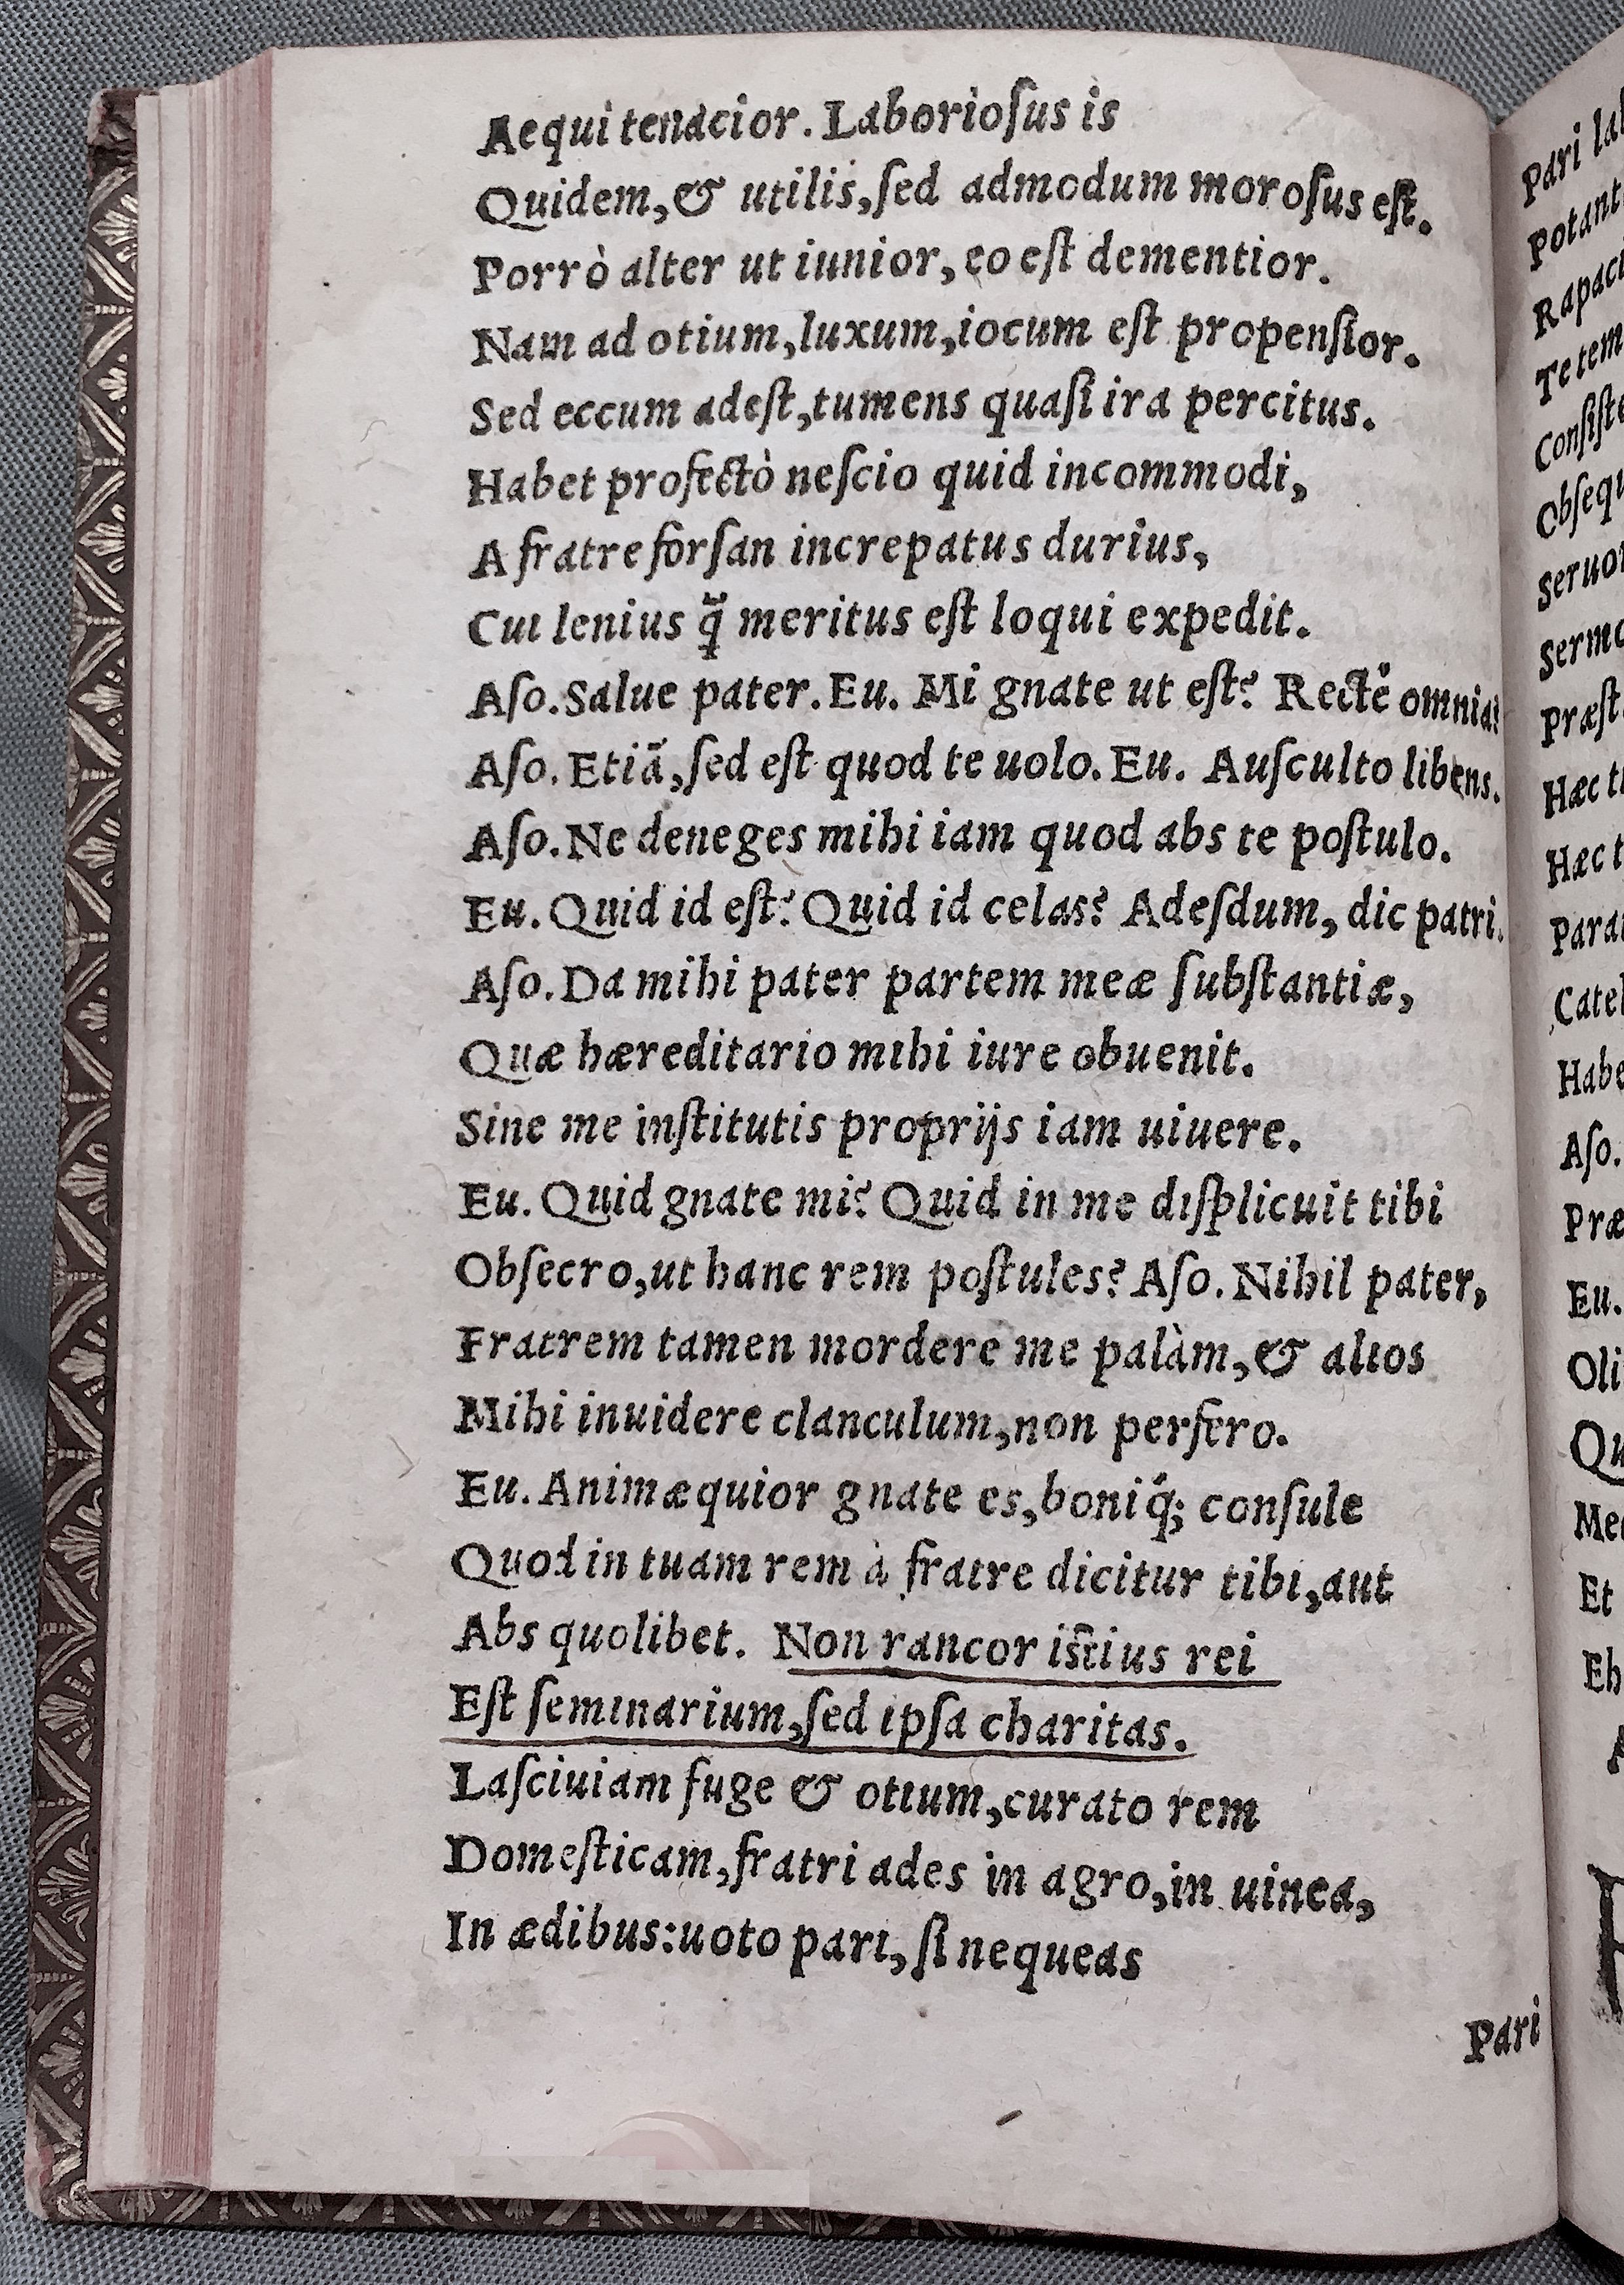 Aequi tenacior. Laborioſus is
Quidem, & utilis, ſed admodum moroſus eſt.
Porrò alter ut iunior, eo eſt dementior.
Nam ad otium, luxum, iocum eſt propenſior.
Sed eccum adeſt, tumens quaſi ira percitus.
Habet profectò neſcio quid incommodi,
A fratre forſan increpatus durius,
Cui lenius q̃ meritus eſt loqui expedit.
Aſo. Salue pater. Eu. Mi gnate ut eſt? Rectè omnia?
Aſo. Etiã, ſed eſt quod te uolo. Eu. Auſculto libens.
Aſo. Ne deneges mihi iam quod abs te poſtulo.
Eu. Quid id eſt? Quid id celas? Adeſdum, dic patri.
Aſo. Da mihi pater partem meæ ſubſtantiæ,
Quæ hæreditario mihi iure obuenit.
Sine me inſtitutis proprijs iam uiuere.
Eu. Quid gnate mi? Quid in me diſplicuit tibi
Obſecro, ut hanc rem poſtules? Aſo. Nihil pater,
Fratrem tamen mordere me palàm, & alios
Mihi inuidere clanculum, non perfero.
Eu. Animæquior gnate es, boniq́; conſule
Quod in tuam rem à fratre dicitur tibi, aut
Abs quolibet. Non rancor iſtius rei
Eſt ſeminarium, ſed ipſa charitas.
Laſciuiam fuge & otium, curato rem
Domeſticam, fratri ades in agro, in uinea,
In ædibus: uoto pari, ſi nequeas
Pari
Pari
Te
Hæc
Hæc
Aſo.
Eu.
Et